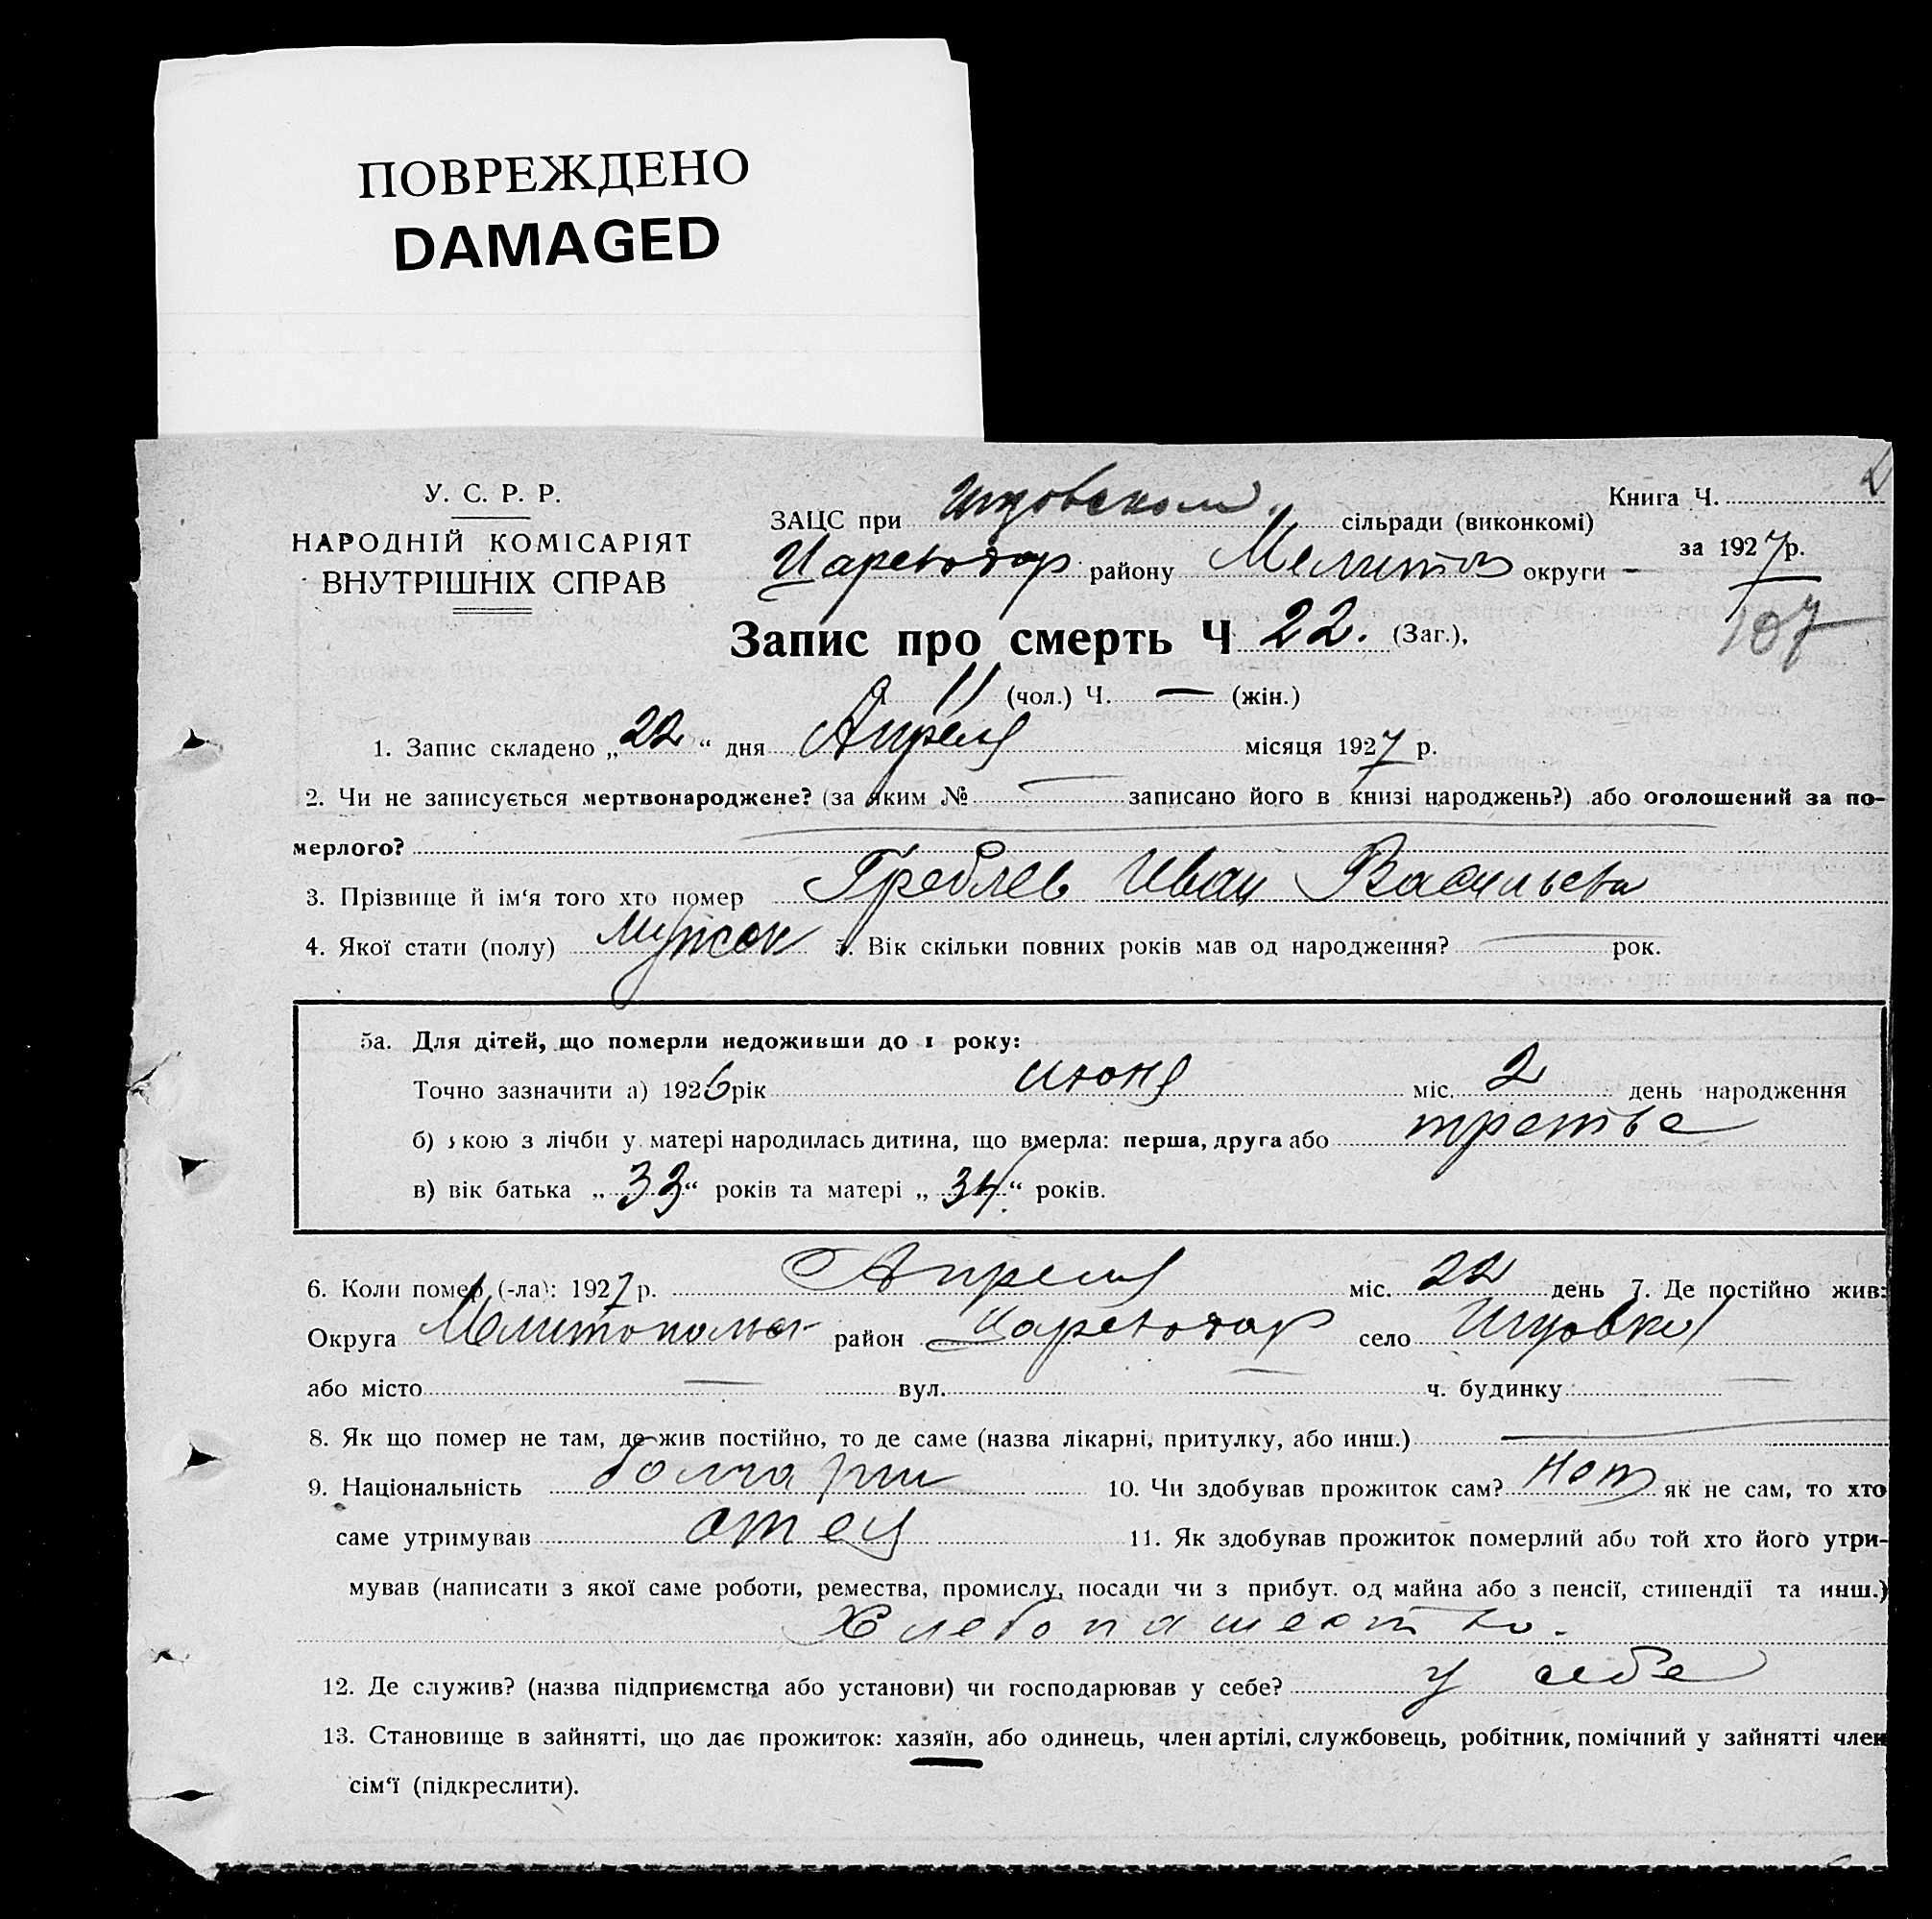 ПОВРЕЖДЕНО
DAMAGED
У. С. Р. Р.
НАРОДНІЙ КОМІСАРІЯТ
ВНУТРІШНІХ СПРАВ
Книга Ч. 2
ЗАЦС при сільради (виконкомі)
за 1927 р.
района Мелитоп округи -
107
Запис про смерть Ч 22. (Заг.),
11 (чол.) Ч. — (жін.)
1. Запис складено „22“ дня Апреля місяця 1927 р.
2. Чи не записується мертвонароджене? (за яким № — записано його в книзі народжень?) або оголошений за по-
мерлого?
3. Прізвище й ім‘я того хто помер Греблев Иван Васильев
4. Якої стати (полу) мужск 5. Вік скільки повних років мав од народження? — рок.
5а. Для дітей, що померли недоживши до 1 року:
Точно зазначити а) 1926 рік июня міс. 2 день народження
б) якою з лічби у матері народилась дитина, що вмерла: перша, друга або третье
в) вік батька „33“ років та матері „34“ років.
6. Коли помер (-ла): 1927 р. Апреля міс. 22 день 7. Де постійно жив:
Округа район село
або місто — вул. — ч. будинку —
8. Як що помер не там, де жив постійно, то де саме (назва лікарні, притулку, або инш.) —
9. Національність болгарин 10. Чи здобував прожиток сам? нет як не сам, то хто
саме утримував отец 11. Як здобував прожиток померлий або той хто його утри-
мував (написати з якої саме роботи, ремества, промислу, посади чи з прибут. од майна або з пенсії, стипендії та инш.)
Хлебопашество.
12. Де служив? (назва підприємства або установи) чи господарював у себе? у себе
13. Становище в зайнятті, що дає прожиток: хазяїн, або одинець, член артілі, службовець, робітник, помічний у зайнятті член
сім‘ї (підкреслити).